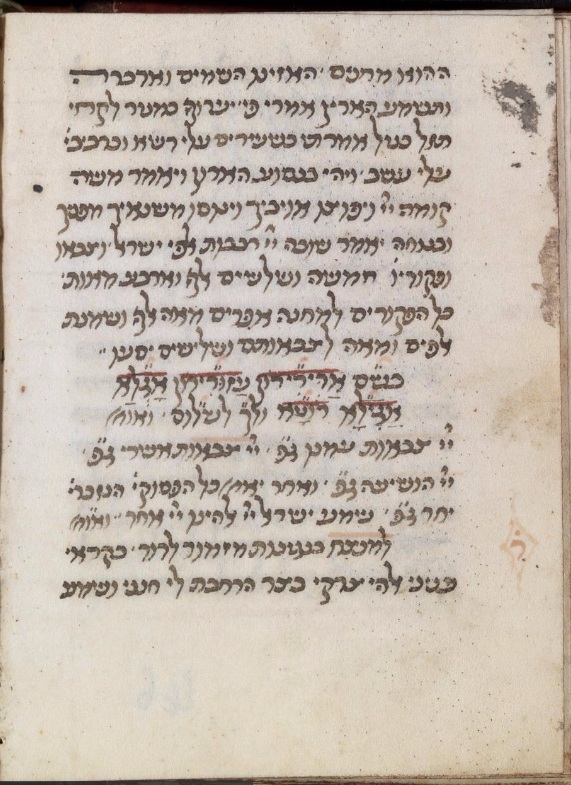 ההוא מרחם האזינו השמים ואדברה
ותשמע הארץ אמרי פי יערוף כמטר לקחי
תזל כטל אמרתי כשעירים עלי דשא וכרביבי׳
עלי עשב ויהי בנסוע הארון ויאמר משה
קומה יי׳ ויפוצו אויביך וינוסו משנאיך מפניך
ובנוחה יאמר שובה יי׳ רבבות אלפי ישראל וצבאו
ופקודיו חמשה ושלשים אלף וארבע מאות
כל הפקודים למחנה אפרים מאת אלף ושמנת
אלפים ומאה לצבאותם ושלישים יסעו
בשם אדירירון אגלא
ואו׳
יי׳ צבאות עמנו ג״פ יי׳ צבאות אשרי ג״פ
יי׳ הושיעה ג״פ ואחר יאמ׳ כל הפסוקי׳ הנזכרי׳
יחד ג״פ שמע ישראל יי׳ אלהינו יי׳ אחד ואו׳
למנצח בנגינות מזמור לדוד בקראי
ענני אלהי צדקי בצר הרחבת לי חנני ושמע